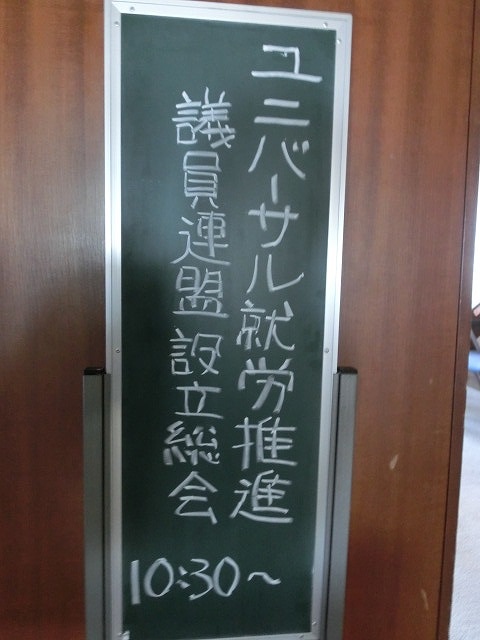 ユニバーサル就労推進
議員連盟設立総会
10:30～